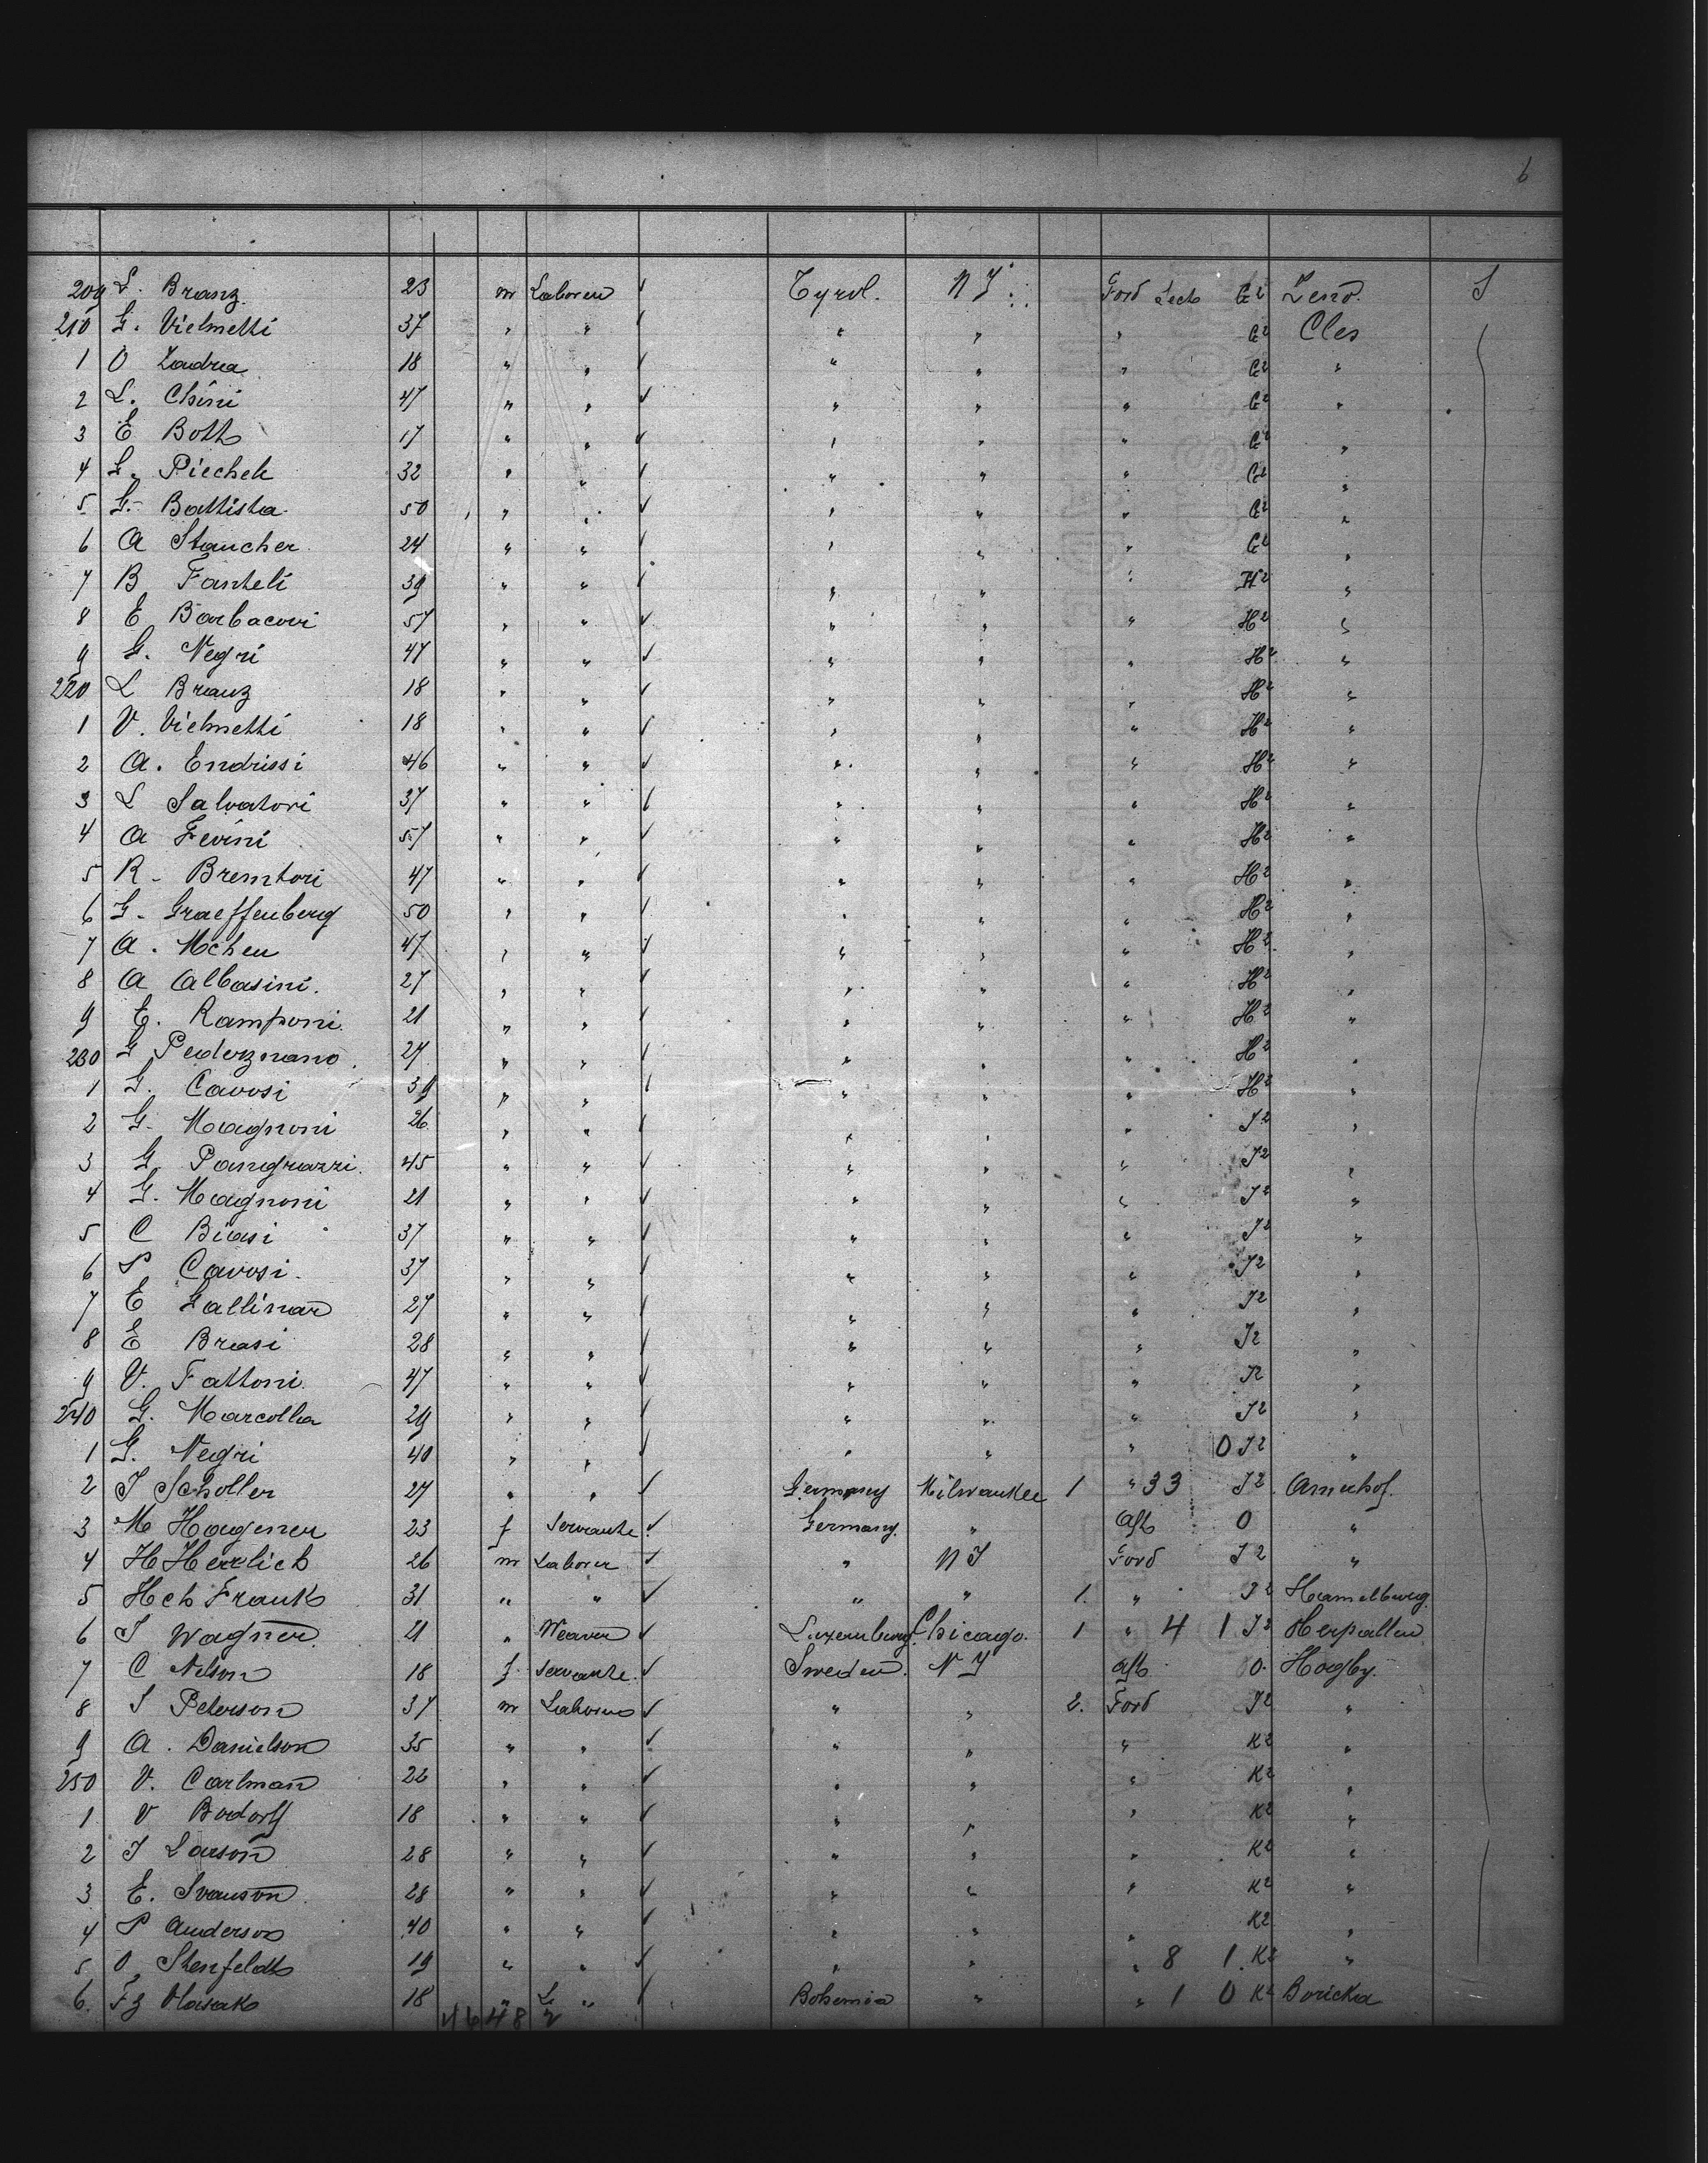 6
209 L. Branz. 23 m Laborer ✓ Tyrol. N Y Ford Sects G2 Zeno. S
210 G. Vielmetti 37 " " ✓ " " " G2 Cles
1 O Zadra 18 " " ✓ " " " G2 "
2 L. Chini 47 " " ✓ " " " G2 "
3 E Both 17 " " ✓ " " " G2 "
4 G. Piechele 32 " " ✓ " " " G2 "
5 G. Battista 50 " " ✓ " " " G2 "
6 A Staucher 24 " " ✓ " " " G2 "
7 B Fanteli 39 " " ✓ " " " H2 "
8 E Barbacovi 57 " " ✓ " " " H2 "
9 G. Negri 47 " " ✓ " " " H2 "
220 L Branz 18 " " ✓ " " " H2 "
1 V. Vielmetti 18 " " ✓ " " " H2 "
2 A. Endrissi 46 " " ✓ " " " H2 "
3 L Salvatori 37 " " ✓ " " " H2 "
4 A Fevini 57 " " ✓ " " " H2 "
5 R. Bremtori 47 " " ✓ " " " H2 "
6 G. Graeffenberg 50 " " ✓ " " " H2 "
7 A. Mcheu 47 " " ✓ " " " H2 "
8 A Albasini. 27 " " ✓ " " " H2 "
9 E. Ramponi. 21 " " ✓ " " " H2 "
230 G Pederznano. 27 " " ✓ " " " H2 "
1 G. Cavosi 39 " " ✓ " " " H2 "
2 G. Magnoni 26 " " ✓ " " " J2 "
3 G Pangrazzi. 45 " " ✓ " " " J2 "
4 G. Magnoni 21 " " ✓ " " " J2 "
5 C Biasi 37 " " ✓ " " " J2 "
6 P Cavosi. 37 " " ✓ " " " J2 "
7 E Gallinar 27 " " ✓ " " " J2 "
8 E Brasi 28 " " ✓ " " " J2 "
9 V. Fattoni. 47 " " ✓ " " " J2 "
240 G. Marcolla 29 " " ✓ " " " J2 "
1 G. Negri 40 " " ✓ " " " 0 J2 "
2 J Scholler 27 " " ✓ Germany Milwaukee 1 " 33 J2 Amerhof.
3 M Hagener 23 f Servante ✓ Germany. " Aft 0 "
4 H Herrlich 26 m Laborer ✓ " N Y Ford J2 "
5 Hch Frank 31 " " ✓ " " 1. " J2 Hamelburg.
6 J Wagner. 21 " Weaver ✓ Luxemburg. Chicago. 1 " 4 1 J2 Herpallen
7 C Nelson 18 f. Servante. ✓ Sweden. N Y aft 0. Hogby.
8 S Peterson 37 m Laborers ✓ " " 2. Ford J2 "
9 A. Danielson 35 " " ✓ " " " K2 "
250 V. Carlman 22 " " ✓ " " " K2 "
1 V Bodorff 18 " " ✓ " " " K2 "
2 J Larson 28 " " ✓ " " " K2 "
3 E. Svanson 28 " " ✓ " " " K2 "
4 P Anderson 40 " " ✓ " " " K2 "
5 O. Stenfeldt 19 " " ✓ " " " 8 1. K2 "
6. Fz Vlasak 18 " L " ✓ Bohemia " " 1 0 K2 Boricka
46 48 2